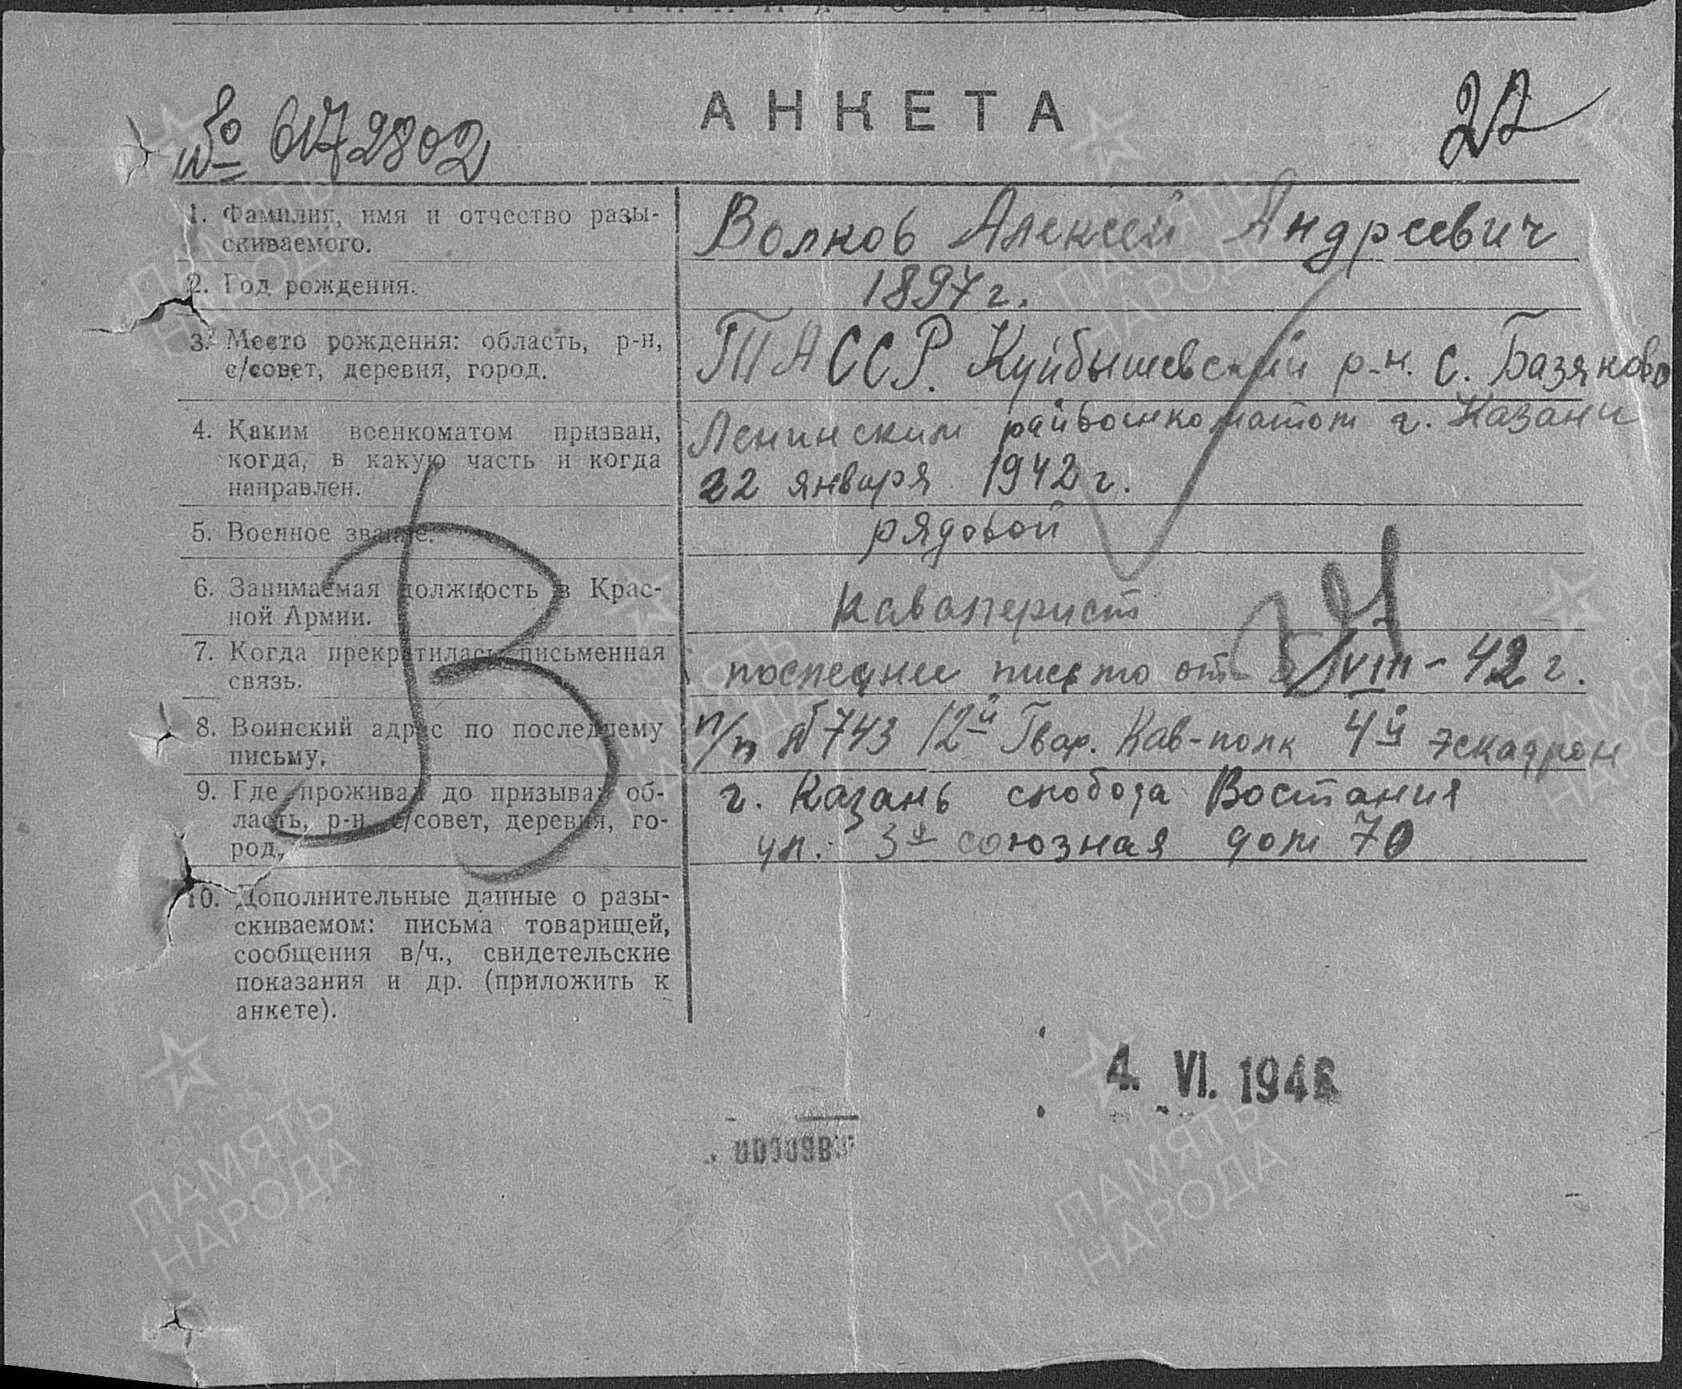 АНКЕТА
22
1. Фамилия, имя и отчество разы-
скиваемого.
Волков Алексей Андреевич
2. Год рождения.
1897 г.
3. Место рождения: область, р-н,
с/совет, деревня, город.
ТАССР. Куйбышевский р-н. с. Базяково
4. Каким военкоматом призван,
когда, в какую часть и когда
направлен.
Ленинским райвоенкоматом г. Казани
22 января 1942 г.
5. Военное звание.
рядовой
6. Занимаемая должность в Крас-
ной Армии.
Кавалерист
7. Когда прекратилась письменная
связь.
последнее письмо от VIII - 42 г.
8. Воинский адрес по последнему
письму.
п/п № 743 12й Гвар. Кав-полк 4й эскадрон
9. Где проживал до призыва: об-
ласть, р-н, с/совет, деревня, го-
род.
г. Казань слобода Востания
ул. 3я союзная дом 70
10. Дополнительные данные о разы-
скиваемом: письма товарищей,
сообщения в/ч., свидетельские
показания и др. (приложить к
анкете).
В
4. VI. 1946
ПАМЯТЬ
НАРОДА